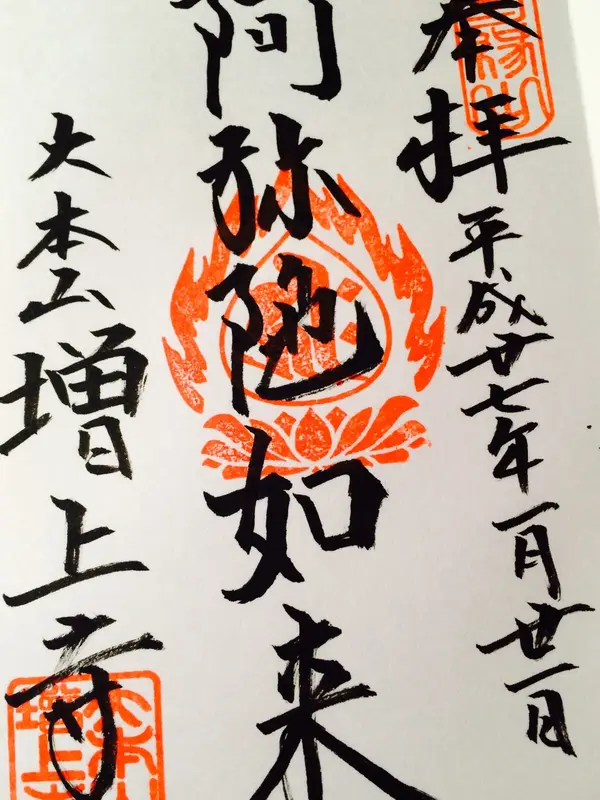 奉拝 平成廿七年一月丗一日
阿弥陀如来
大本山 増上寺
縁山